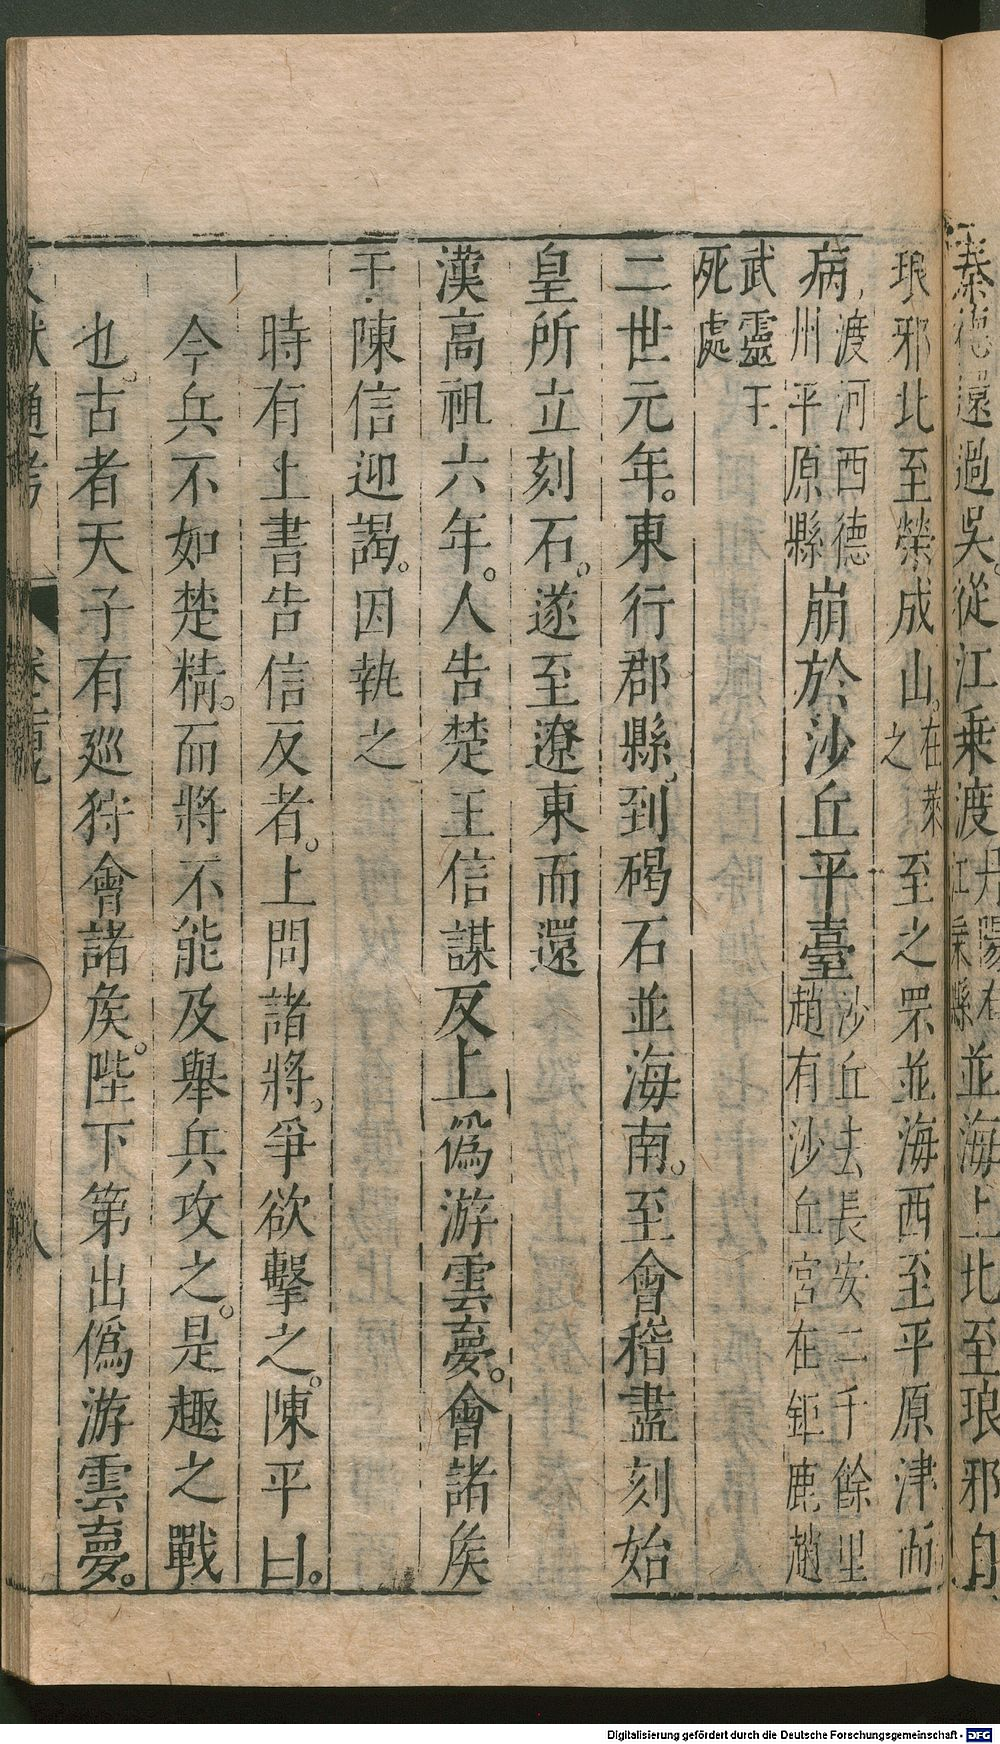 過吳。從江乗渡丹陽有江乗縣並海上北至琅邪自
琅邪北至榮成山。在萊之至之罘並海西至平原津而
病，渡河西德州平原縣崩於沙丘平臺沙丘去長安二千餘里趙有沙丘宮在鉅鹿趙
武靈王死處
二世元年。東行郡縣，到碣石並海南。至會稽盡刻始
皇所立刻石。遂至遼東而還
漢高祖六年。人告楚王信謀反上僞游雲夢。會諸矦
于陳信迎謁。因執之
時有上書告信反者。上問諸將，爭欲擊之。陳平曰。
今兵不如楚精。而將不能及舉兵攻之。是趣之戰
也。古者天子有廵狩會諸矦。陛下第出僞游雲夢。
通考
八
Digitalisierung gefördert durch die Deutsche Forschungsgemeinschaft - DFG